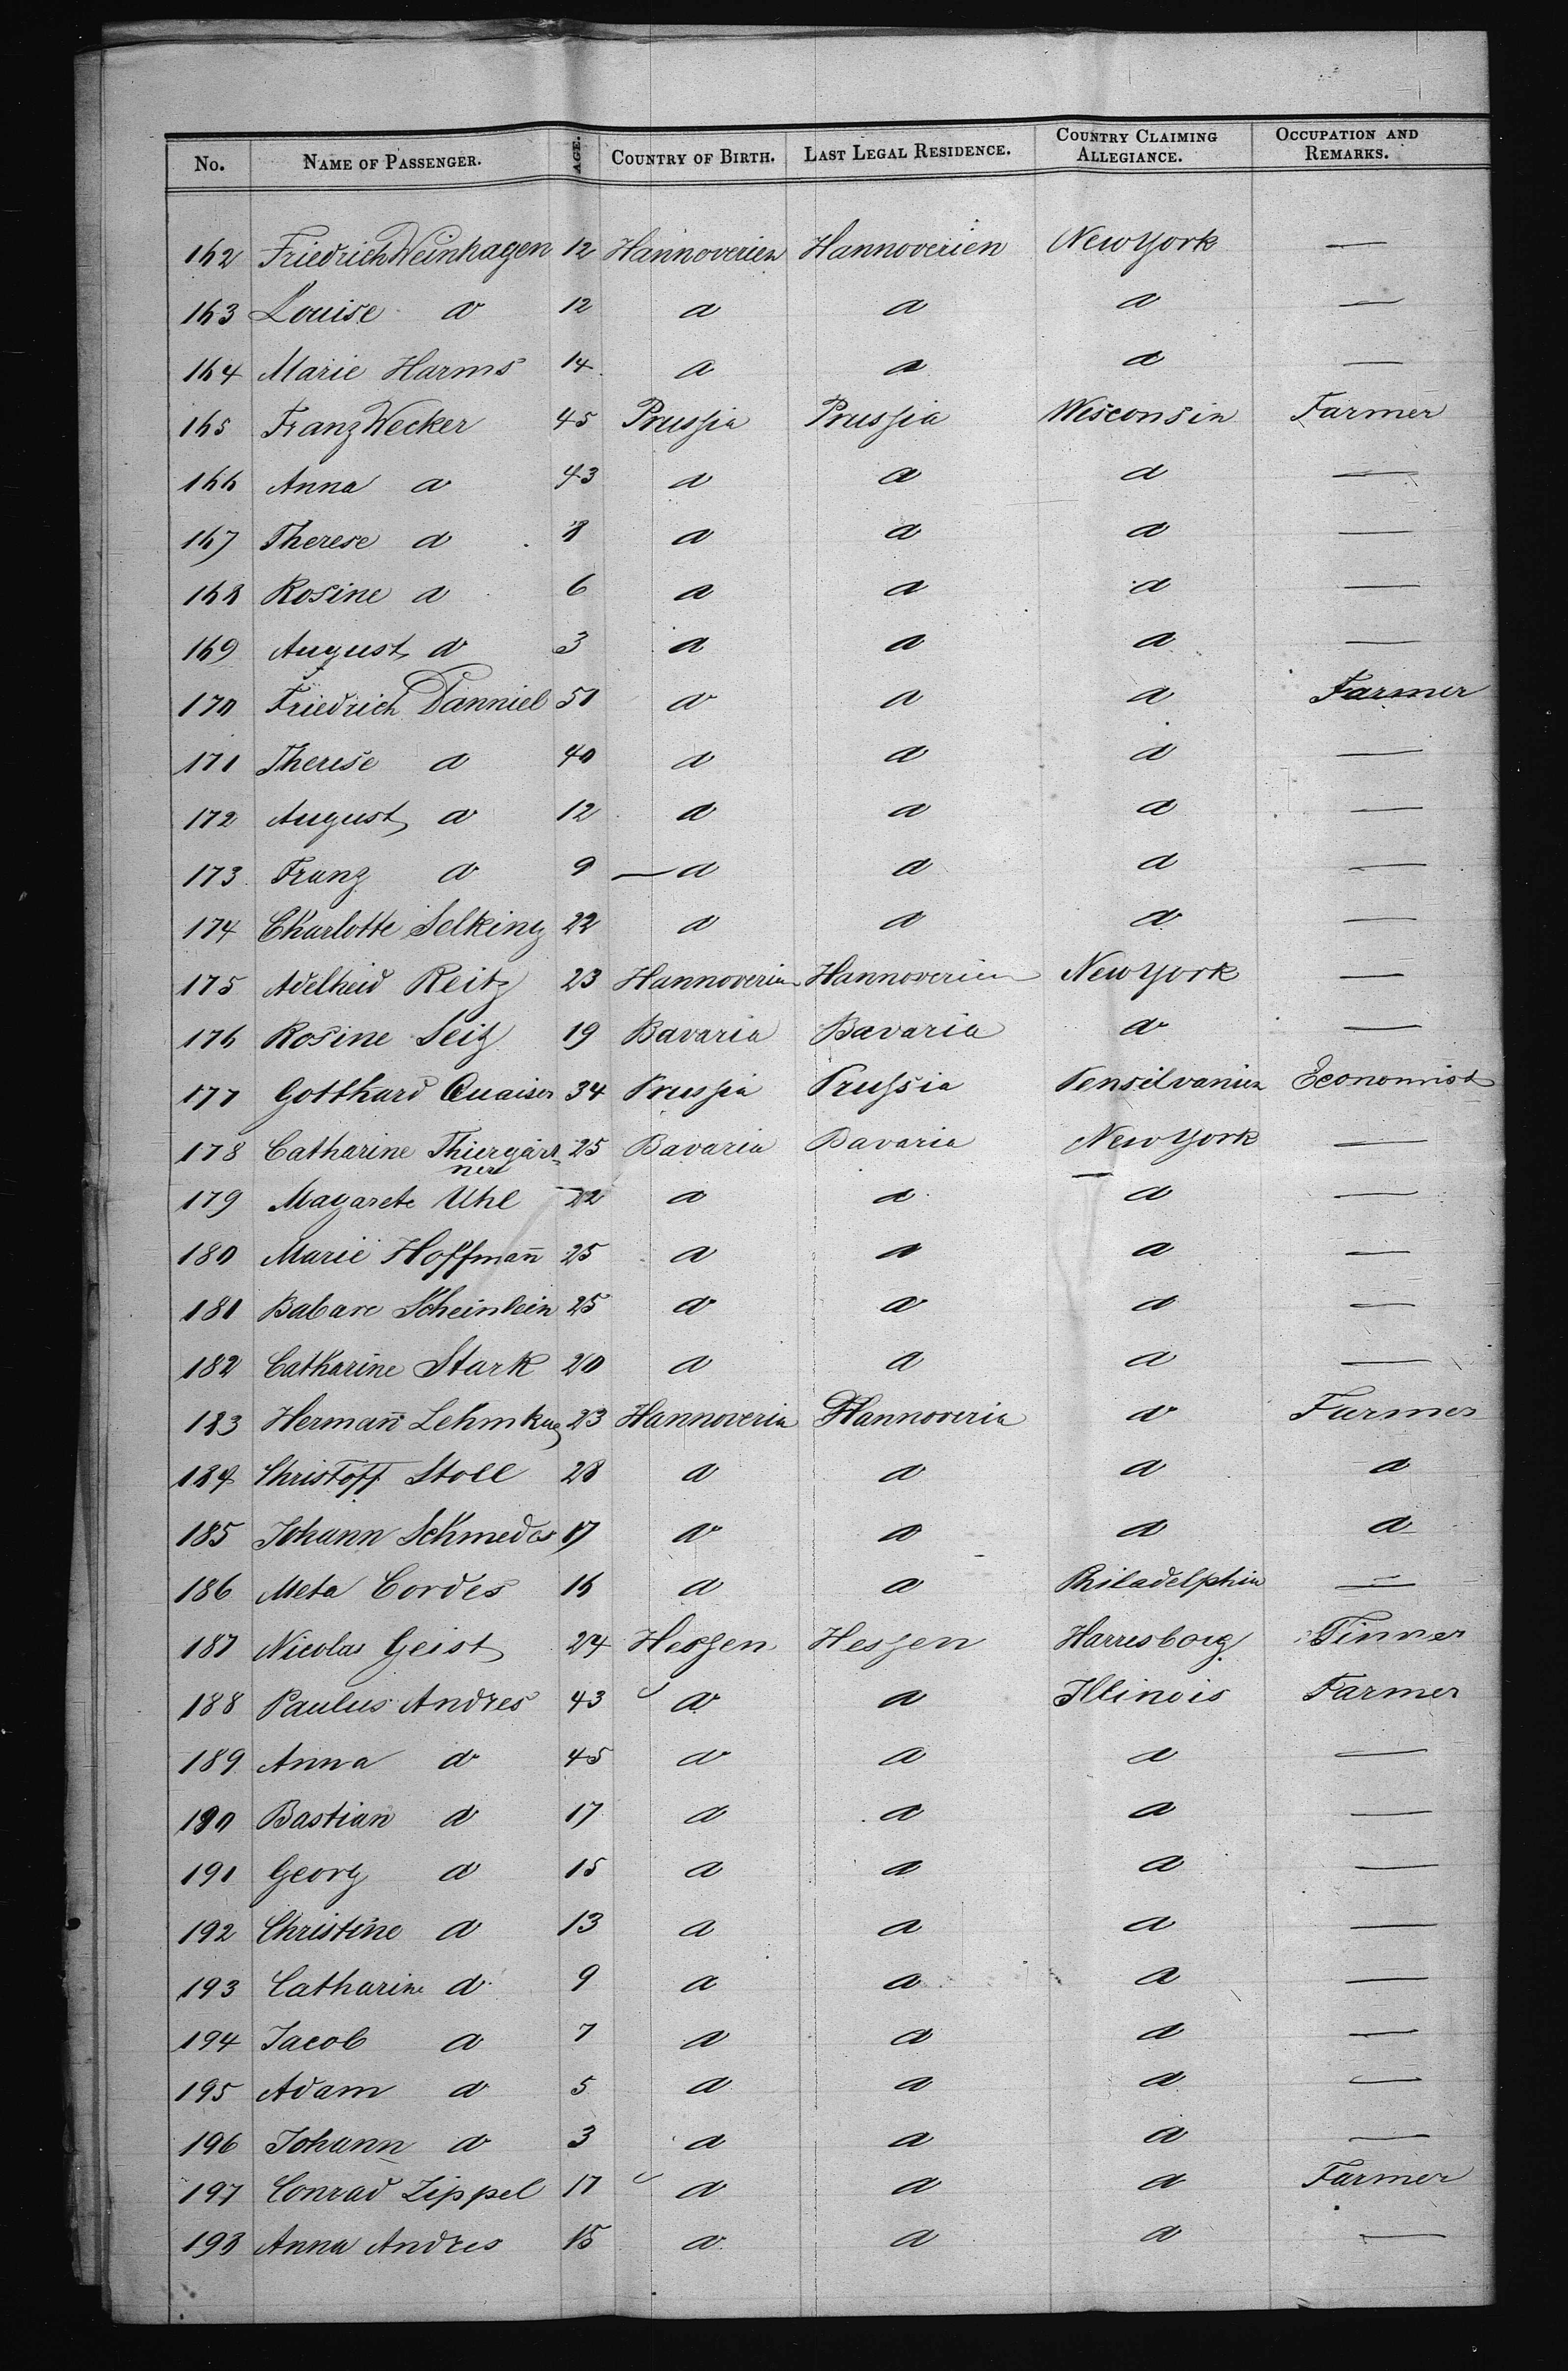 No. NAME OF PASSENGER. AGE. COUNTRY OF BIRTH. LAST LEGAL RESIDENCE. COUNTRY CLAIMING ALLEGIANCE. OCCUPATION AND REMARKS.
162 Friedrich Weinhagen 12 Hannoverien Hannoverien New York —
163 Louise do 12 do do do —
164 Marie Harms 14 do do do —
165 Franz Wecker 45 Prussia Prussia Wisconsin Farmer
166 Anna do 43 do do do —
167 Therese do 8 do do do —
168 Rosine do 6 do do do —
169 August do 3 do do do —
170 Friedrich Danniel 50 do do do Farmer
171 Therese do 40 do do do —
172 August do 12 do do do —
173 Franz do 9 — do do do —
174 Charlotte Selking 22 do do do —
175 Adelheid Reitz 23 Hannoverien Hannoverien New York —
176 Rosine Seitz 19 Bavaria Bavaria do —
177 Gotthard Quaiser 34 Prussia Prussia Pensilvanien Economist
178 Catharine Thiergärt= 25 Bavaria Bavaria New York —
ner
179 Magarete Uhl 22 do do do —
180 Marie Hoffman̄ 25 do do do —
181 Babare Scheinlein 25 do do do —
182 Catharine Stark 20 do do do —
183 Herman̄ Lehmkug 23 Hannoveria Hannoveria do Farmer
184 Christoff Stoll 28 do do do do
185 Johann Schmedes 17 do do do do
186 Meta Cordes 16 do do Philadelphia —
187 Nicolas Geist 24 Hessen Hessen Harresborg Tinner
188 Paulus Andres 43 do do Illinois Farmer
189 Anna do 45 do do do —
190 Bastian do 17 do do do —
191 Georg do 15 do do do —
192 Christine do 13 do do do —
193 Catharine do 9 do do do —
194 Jacob do 7 do do do —
195 Adam do 5 do do do —
196 Johann do 3 do do do —
197 Conrad Zippel 17 do do do Farmer
198 Anna Andres 15 do do do —